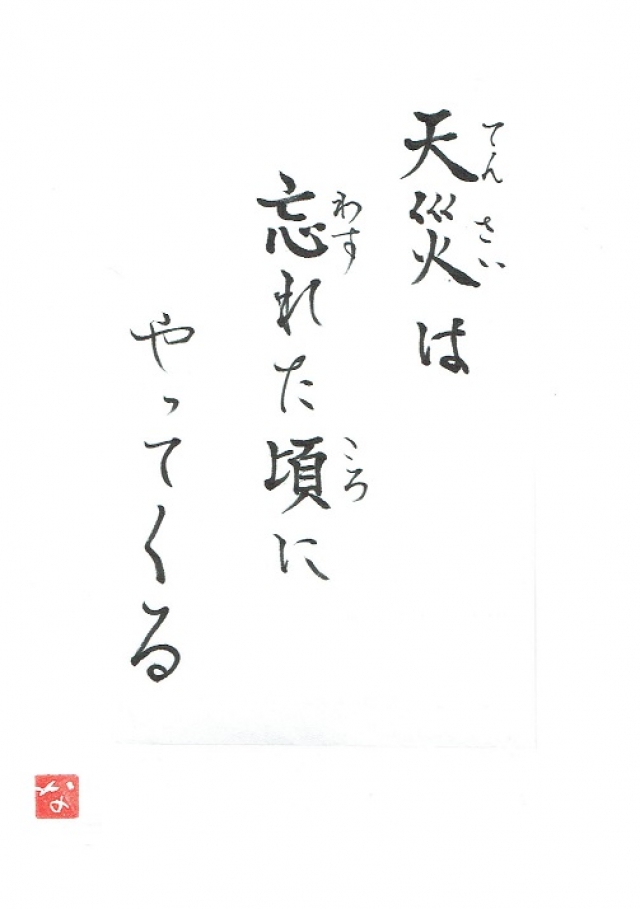 天災は
てんさい
忘れた頃に
わす
ころ
やってくる
な